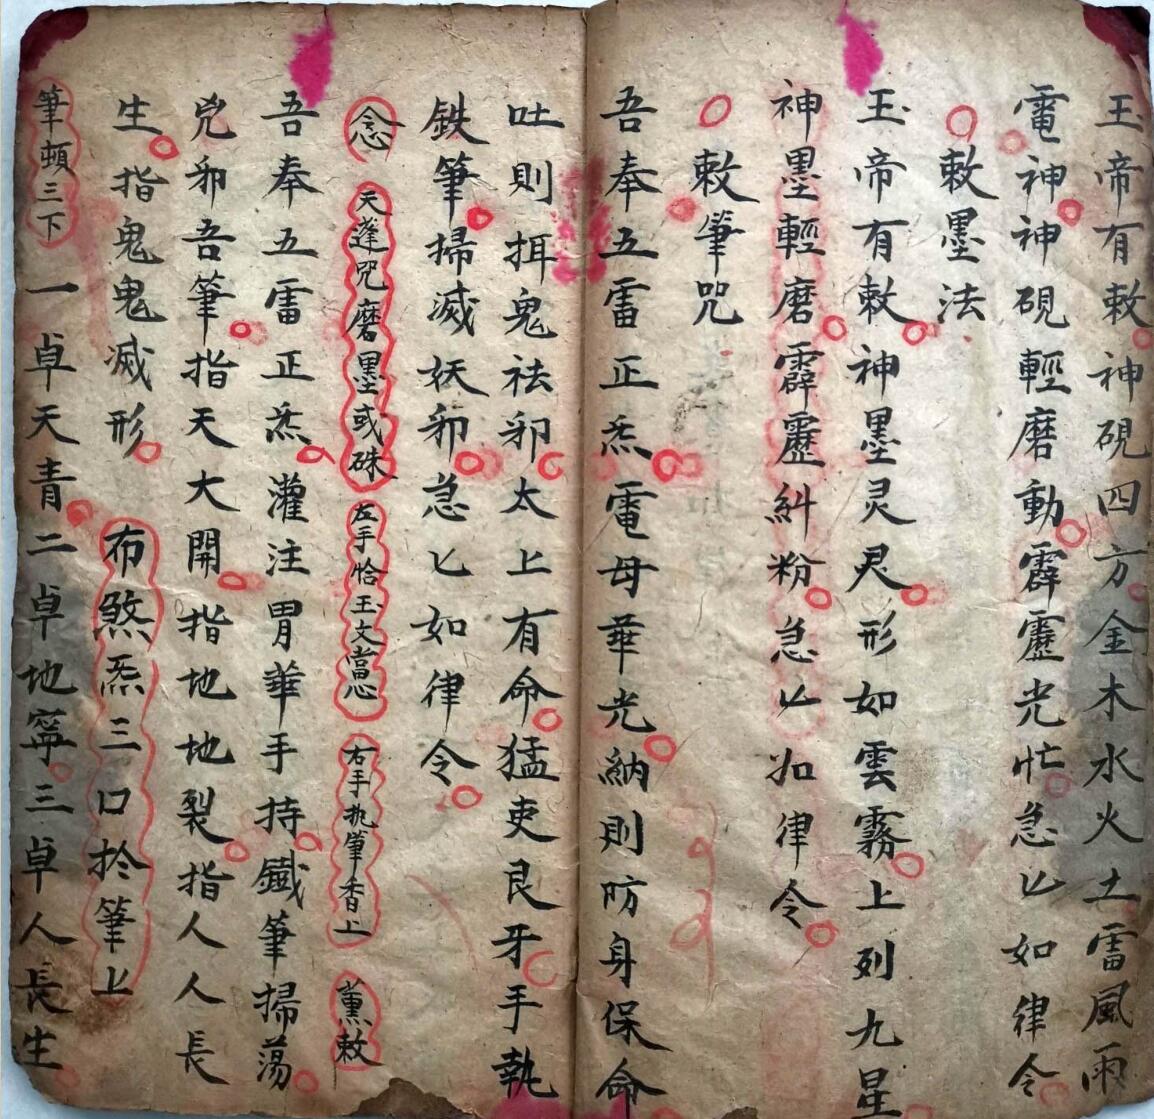 玉帝有敕神硯四方金木水火土雷風雨
電神神硯輕磨動霹靂光忙急匕如律令
敕墨法
玉帝有敕神墨灵灵形如雲霧上列九星
神墨輕磨霹靂糾粉急匕如律令
敕筆咒
吾奉五雷正炁電母華光納則防身保命
吐則挕鬼祛邪太上有命猛吏良牙手執
鉄筆掃滅妖邪急匕如律令
念 天蓬咒磨墨或硃 左手恰玉文當心 右手执筆香上 薰敕
吾奉五雷正炁灌注胃華手持鐵筆掃蕩
兇邪吾筆指天大開指地地裂指人人長
生指鬼鬼滅形 布煞炁三口扵筆上
筆頓三下 一卓天青二卓地寧三卓人長生